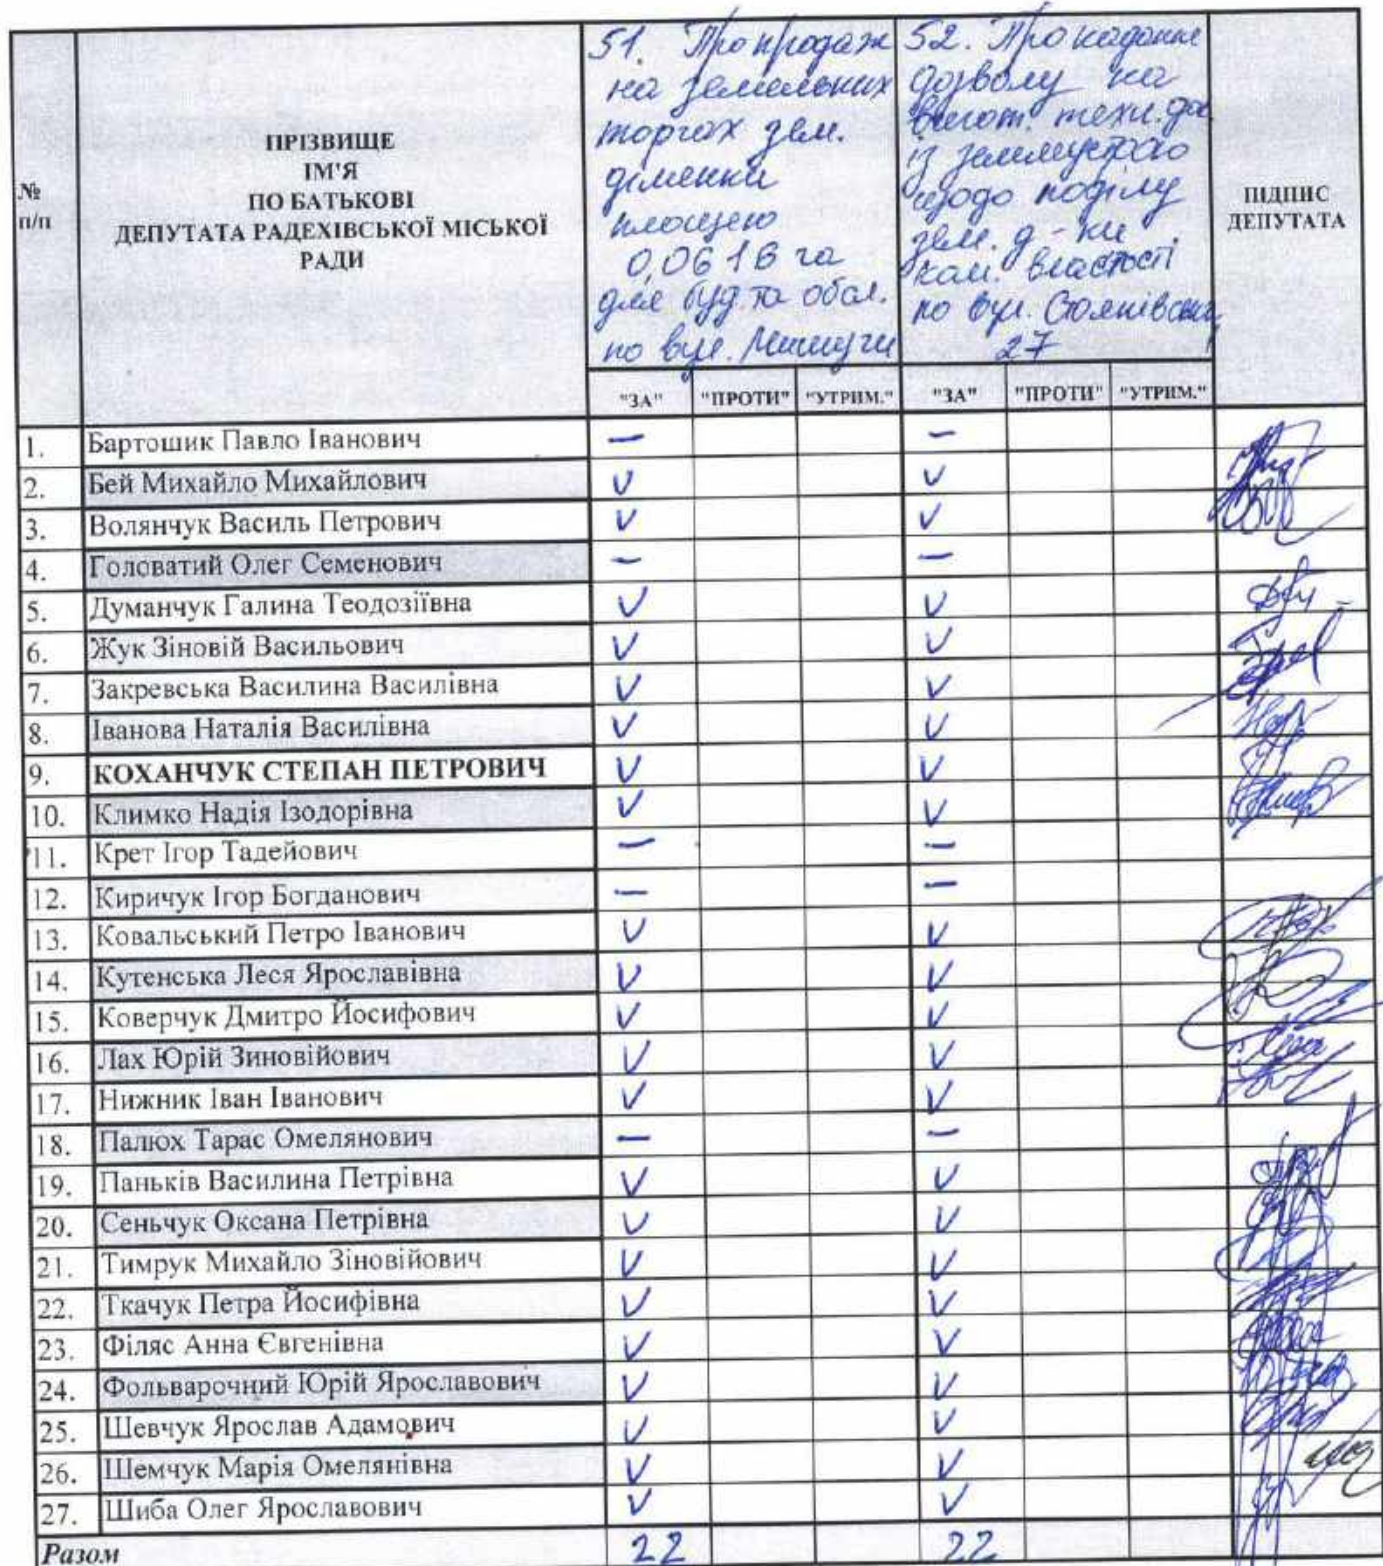 №
п/п
ПРІЗВИЩЕ
ІМ'Я
ПО БАТЬКОВІ
ДЕПУТАТА РАДЕХІВСЬКОЇ МІСЬКОЇ
РАДИ
51. Про продаж
на земельних
торгах зем.
ділянки
площею
0,0616 га
для буд. та обсл.
по вул.
52. Про надання
дозволу на
вигот. техн. док
із землеустрою
щодо поділу
зем. д-ки
ком. власності
по вул. Стоянівська
27
ПІДПИС
ДЕПУТАТА
"ЗА" "ПРОТИ" "УТРИМ." "ЗА" "ПРОТИ" "УТРИМ."
1. Бартошик Павло Іванович – –
2. Бей Михайло Михайлович V V
3. Волянчук Василь Петрович V V
4. Головатий Олег Семенович – –
5. Думанчук Галина Теодозіївна V V
6. Жук Зіновій Васильович V V
7. Закревська Василина Василівна V V
8. Іванова Наталія Василівна V V
9. КОХАНЧУК СТЕПАН ПЕТРОВИЧ V V
10. Климко Надія Ізодорівна V V
11. Крет Ігор Тадейович – –
12. Киричук Ігор Богданович – –
13. Ковальський Петро Іванович V V
14. Кутенська Леся Ярославівна V V
15. Коверчук Дмитро Йосифович V V
16. Лах Юрій Зиновійович V V
17. Нижник Іван Іванович V V
18. Палюх Тарас Омелянович – –
19. Паньків Василина Петрівна V V
20. Сеньчук Оксана Петрівна V V
21. Тимрук Михайло Зіновійович V V
22. Ткачук Петра Йосифівна V V
23. Філяс Анна Євгенівна V V
24. Фольварочний Юрій Ярославович V V
25. Шевчук Ярослав Адамович V V
26. Шемчук Марія Омелянівна V V
27. Шиба Олег Ярославович V V
Разом 22 22